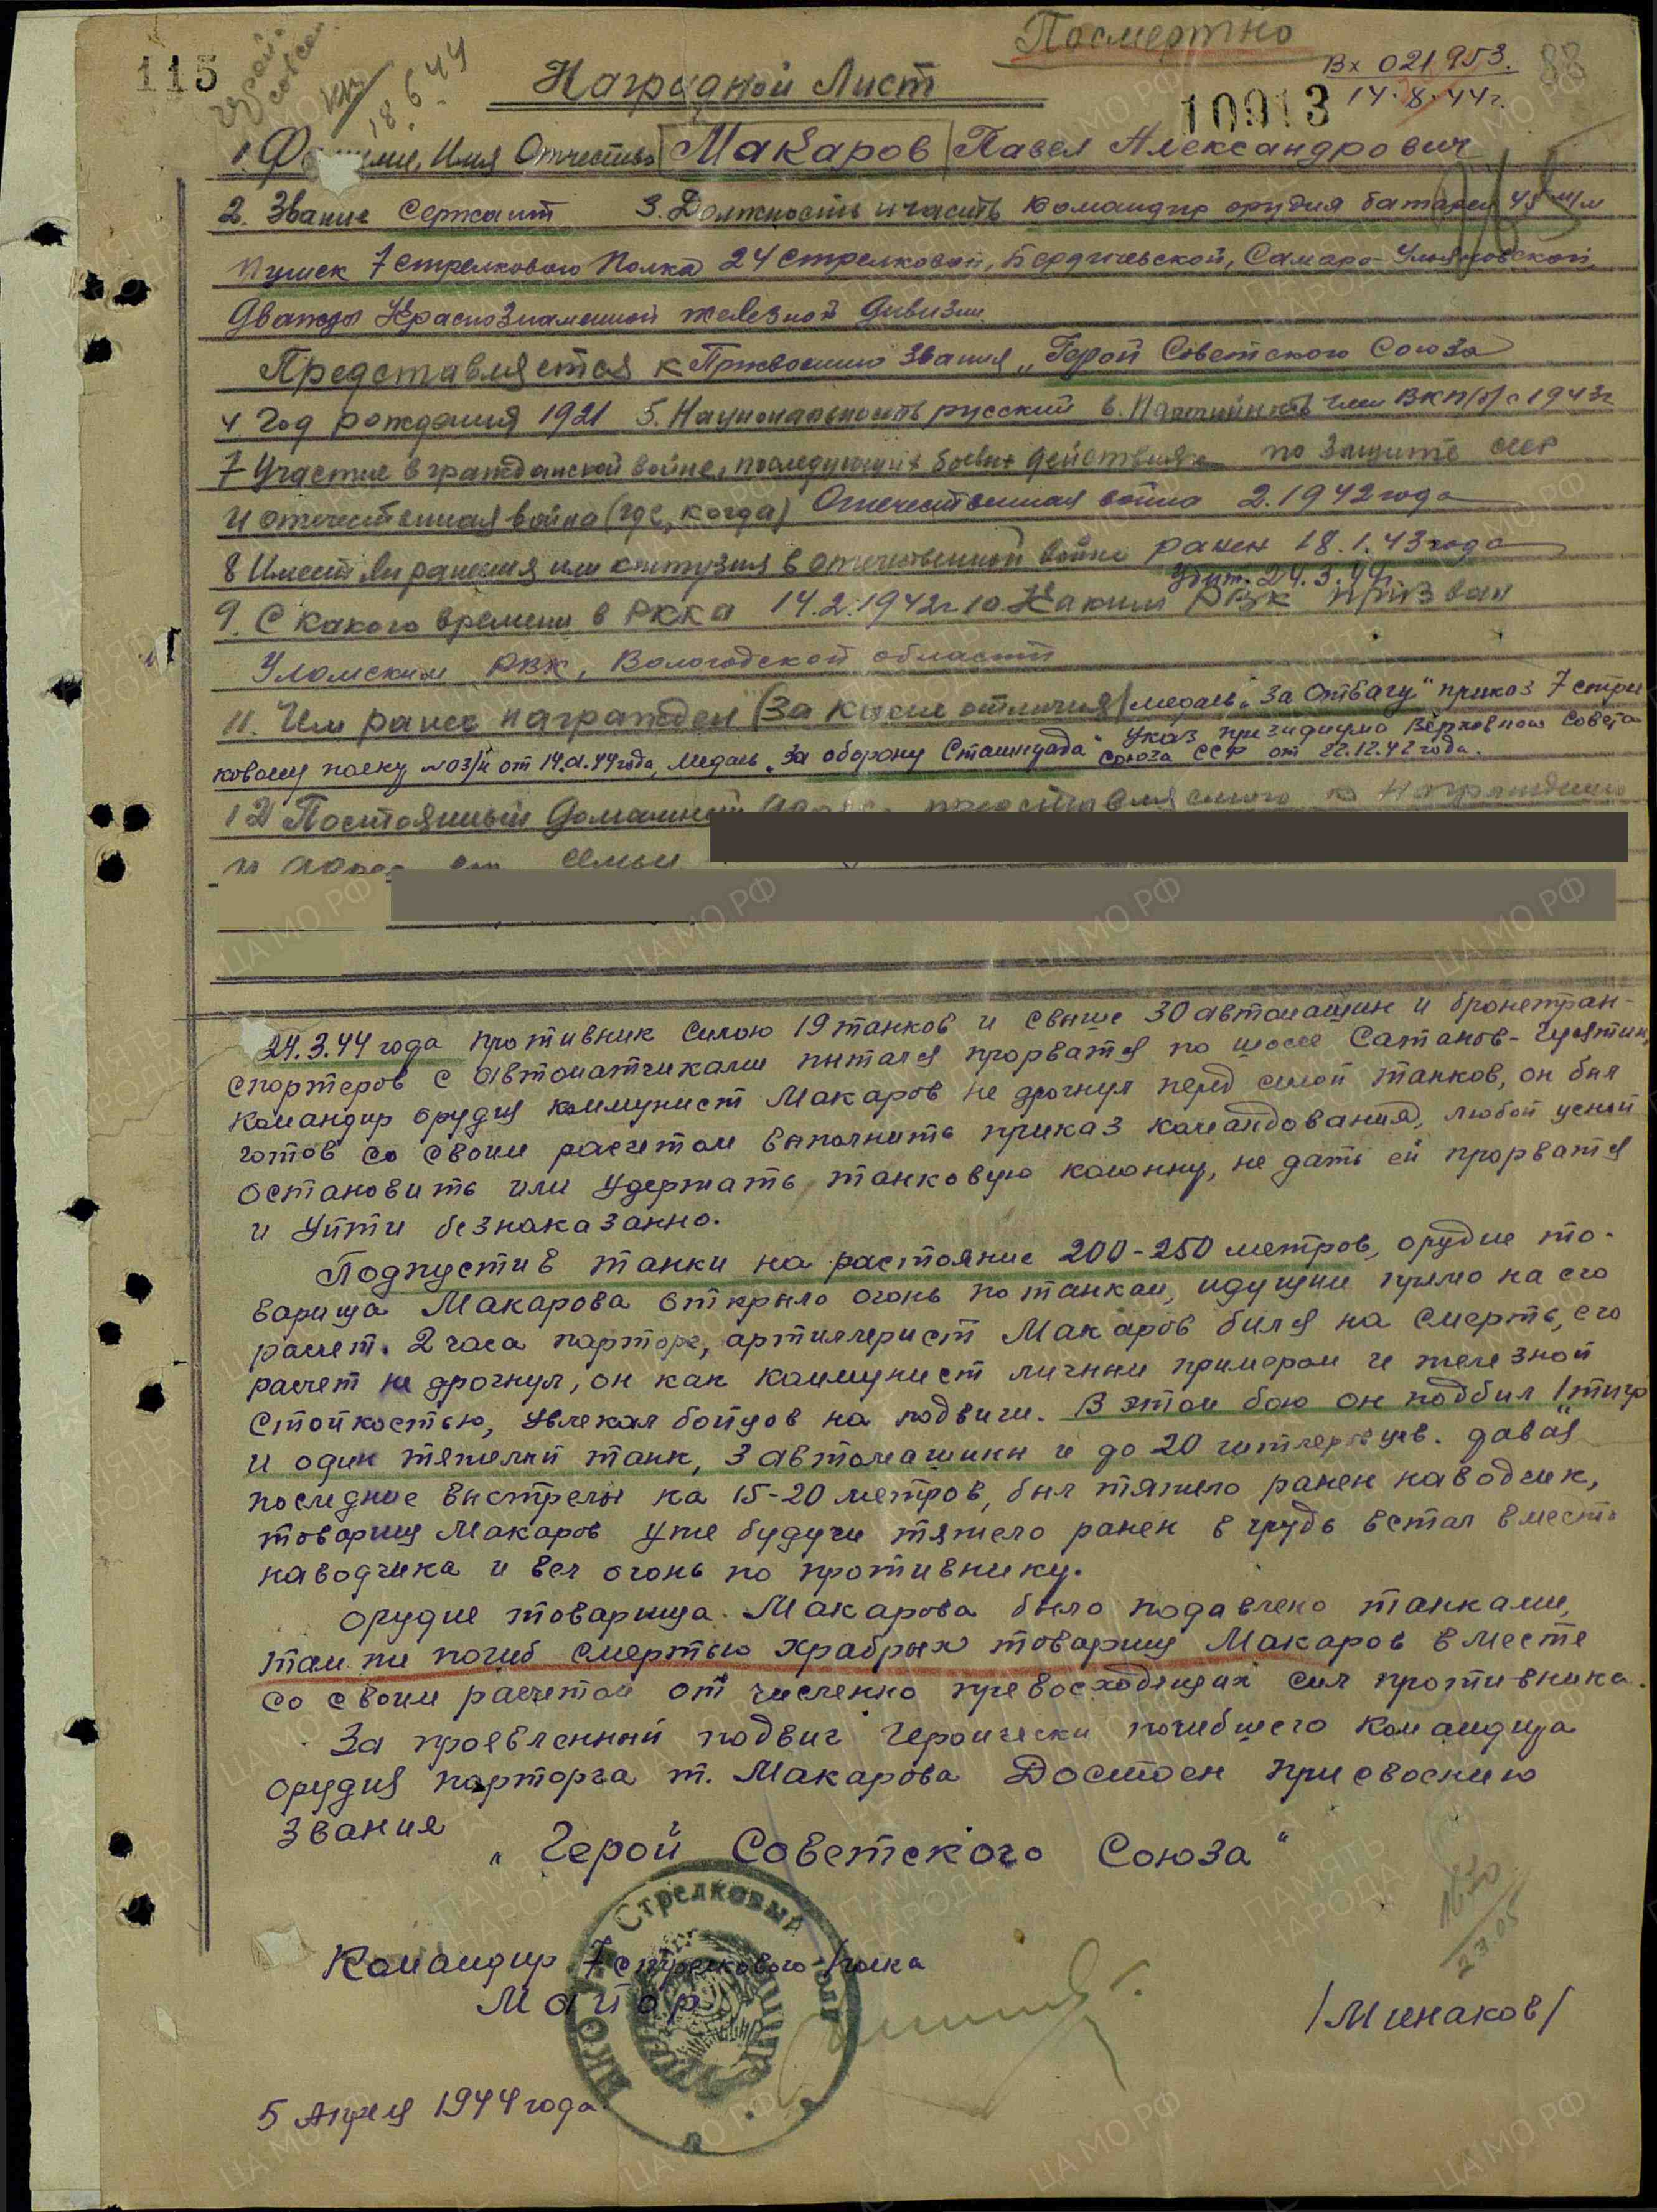 Посмертно
115
18.6.44
Наградной Лист
Вх 021953.
14.8.44г.
88
10913
1. Фамилие, Имя Отчество Макаров Павел Александрович
2. Звание Сержант 3. Должность и часть командир орудия батареи 45 м/м
пушек 7 стрелкового Полка 24 Стрелковой, Бердичевской, Самаро-Ульяновской,
Дважды Краснознаменной железной Дивизии
Представляется к Присвоению Звания „Герой Советского Союза
4 Год рождения 1921 5. Национальность русский 6. Партийность член ВКП/б/ с 1943г
7 Участие в гражданской войне, последующих боевых действиях по защите СССР
и отечественная война (где, когда) Отечественная война 2.1942 года
8 Имеет ли ранения или контузия в отечественной войне ранен 18.1.43 года
убит. 24.3.44г.
9. С какого времени в РККА 14.2.1942г 10. Каким РВК призван
Уломским РВК, Вологодской области
11. Чем ранее награжден (За какие отличия) медаль „За Отвагу" приказ 7 стрел
ковому полку №03/н от 19.1.44 года, Медаль „За оборону Сталинграда" Указ президиума Верховного Совета
Союза ССР от 22.12.42 года.
12 Постоянный Домашний адрес представляемого к награждению
и адрес его семьи
24.3.44 года противник силою 19 танков и свыше 30 автомашин и бронетран-
спортеров с автоматчиками пытался прорватся по шоссе Сатанов-Гусятин,
командир орудия коммунист Макаров не дрогнул перед силой танков, он был
готов со своим расчетом выполнить приказ командования, любой ценой
остановить или удержать танковую колонну, не дать ей прорватся
и уйти безнаказанно.
Подпустив танки на растояние 200-250 метров, орудие то-
варища Макарова открыло огонь по танкам, идущим прямо на его
расчет. 2 часа парторг, артиллерист Макаров бился на смерть, его
расчет не дрогнул, он как коммунист личным примером и железной
стойкостью, увлекал бойцов на подвиги. В этом бою он подбил 1 тигр
и один тяжелый танк, 3 автомашины и до 20 гитлеровцев. Давая
последние выстрелы на 15-20 метров, был тяжело ранен наводчик,
товарищ Макаров уже будучи тяжело ранен в грудь встал вместо
наводчика и вел огонь по противнику.
Орудие товарища Макарова было подавлено танками,
там же погиб смертью храбрых товарищ Макаров вместе
со своим расчетом от численно превосходящих сил противника.
За проявленный подвиг героически погибшего командира
орудия парторга т. Макарова Достоен присвоению
звания
„Герой Советского Союза"
Стрелковый
НКО
Командир 7 стрелкового полка
Майор
/Минаков/
5 Апреля 1944 года
1630
23.05
ЦАМО РФ
ПАМЯТЬ НАРОДА